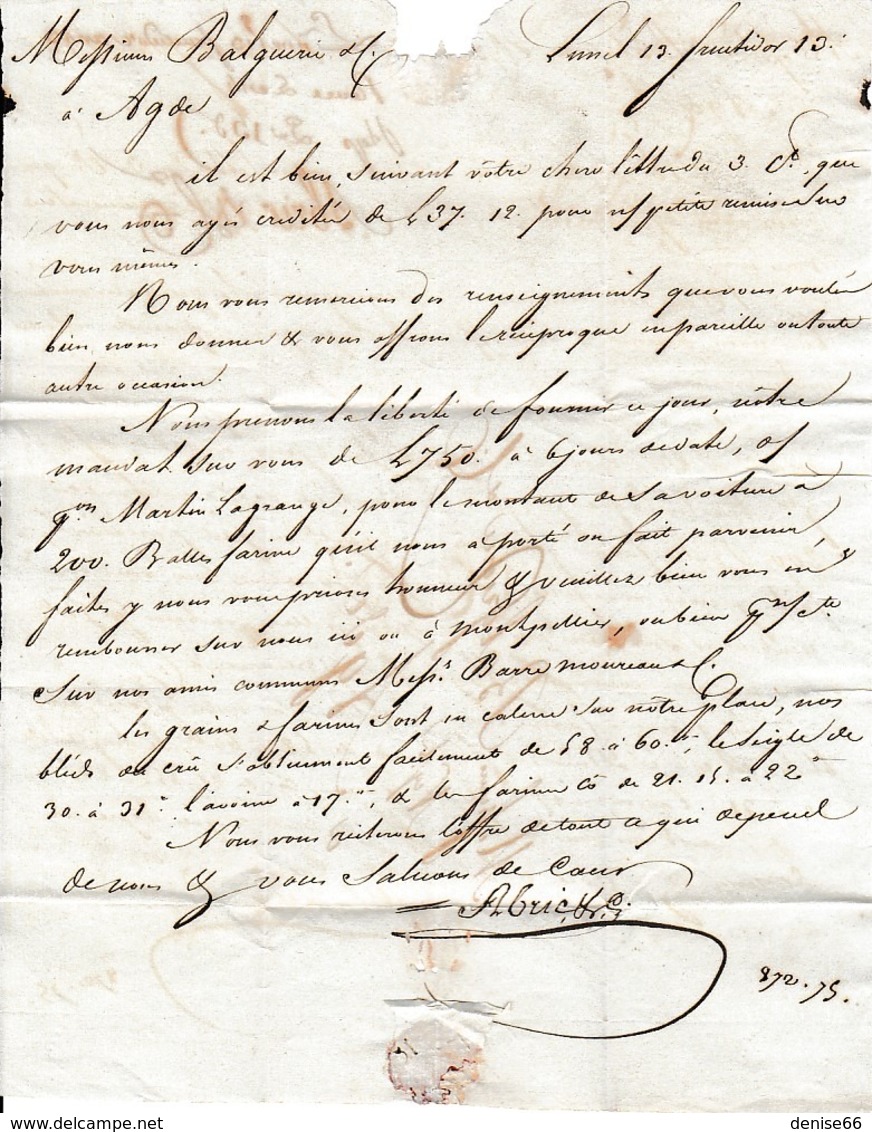 Messieurs Balguerie & C. Lunel 13. fructidor 13.
à Agde
il est bien, suivant vôtre chere léttre du 3. Ct. que
vous nous ayés credités de L 37. 12. pour n/ petite remise sur
vous mêmes.
Nous vous remercions des renseignements que vous voulés
bien nous donner & vous offrons le réciproque en pareille ou toute
autre occasion.
Nous prenons la liberté de fournir ce jour, nôtre
mandat sur vous de L 750. à 6 jours de date, o/
Martin Lagrange, pour le montant de sa voiture à
200. Balles farine qu'il nous à porté ou fait parvenir,
faites y nous vous prions honneur & veuillez bien vous en
rembourser sur nous ici ou à Montpellier, ou bien pr n/ cte
Sur nos amis communs Messrs. Barre moureau & C.
les grains & farines sont en calme sur nôtre place, nos
bléds du crû s'obtiennent facilement de 58. à 60. le seigle de
30. à 31 l'avoine à 17. & les farines Co de 21. 15. à 22
Nous vous reiterons l'offre de tout ce qui depend
de nous & vous saluons de Coeur
Abric, & Co.
872. 75.
denise66